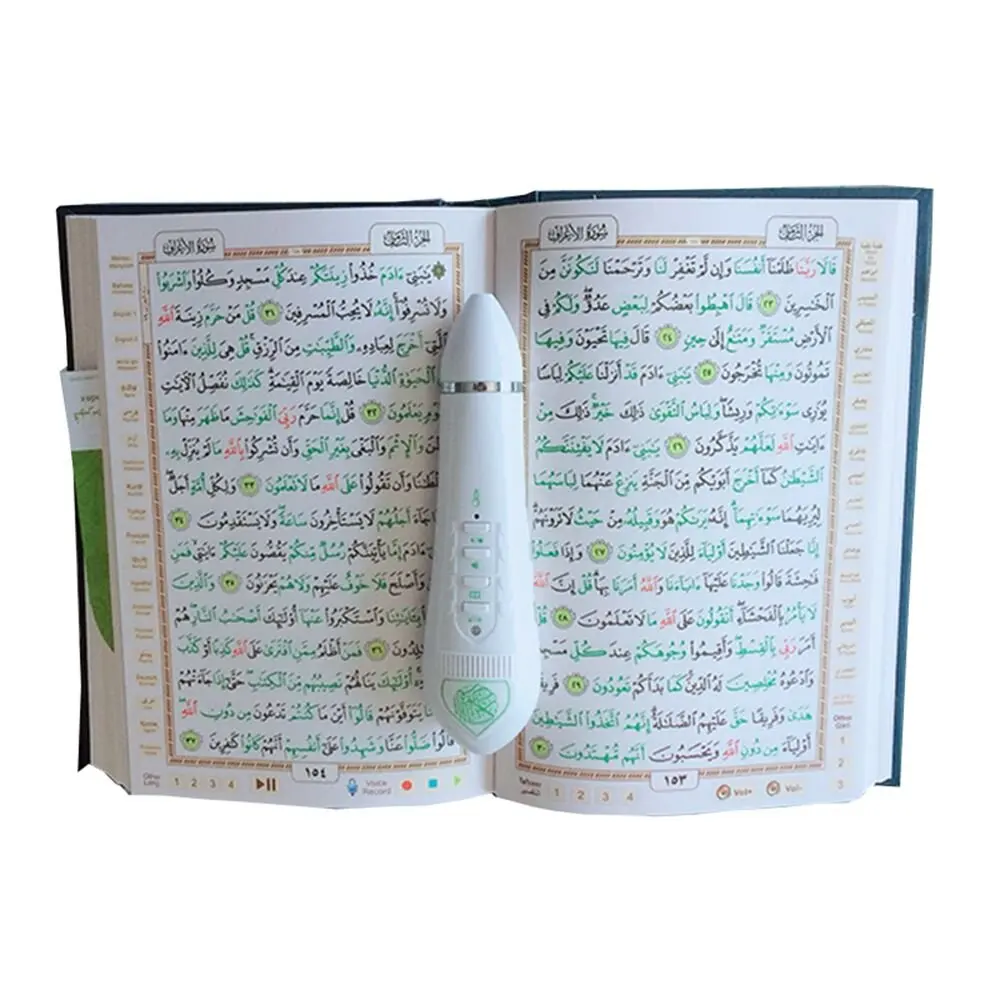 سُورَةُ الأَعْرَافِ
الجُزْءُ الثَّامِنُ
قَالَا رَبَّنَا ظَلَمْنَآ أَنفُسَنَا وَإِن لَّمْ تَغْفِرْ لَنَا وَتَرْحَمْنَا لَنَكُونَنَّ مِنَ
ٱلْخَٰسِرِينَ ٢٣ قَالَ ٱهْبِطُوا۟ بَعْضُكُمْ لِبَعْضٍ عَدُوٌّ ۖ وَلَكُمْ فِى
ٱلْأَرْضِ مُسْتَقَرٌّ وَمَتَٰعٌ إِلَىٰ حِينٍ ٢٤ قَالَ فِيهَا تَحْيَوْنَ وَفِيهَا
تَمُوتُونَ وَمِنْهَا تُخْرَجُونَ ٢٥ يَٰبَنِىٓ ءَادَمَ قَدْ أَنزَلْنَا عَلَيْكُمْ لِبَاسًا
يُوَٰرِى سَوْءَٰتِكُمْ وَرِيشًا ۖ وَلِبَاسُ ٱلتَّقْوَىٰ ذَٰلِكَ خَيْرٌ ۚ ذَٰلِكَ مِنْ
ءَايَٰتِ ٱللَّهِ لَعَلَّهُمْ يَذَّكَّرُونَ ٢٦ يَٰبَنِىٓ ءَادَمَ لَا يَفْتِنَنَّكُمُ
ٱلشَّيْطَٰنُ كَمَآ أَخْرَجَ أَبَوَيْكُم مِّنَ ٱلْجَنَّةِ يَنزِعُ عَنْهُمَا لِبَاسَهُمَا
لِيُرِيَهُمَا سَوْءَٰتِهِمَآ ۗ إِنَّهُۥ يَرَىٰكُمْ هُوَ وَقَبِيلُهُۥ مِنْ حَيْثُ لَا تَرَوْنَهُمْ ۗ
إِنَّا جَعَلْنَا ٱلشَّيَٰطِينَ أَوْلِيَآءَ لِلَّذِينَ لَا يُؤْمِنُونَ ٢٧ وَإِذَا فَعَلُوا۟
فَٰحِشَةً قَالُوا۟ وَجَدْنَا عَلَيْهَآ ءَابَآءَنَا وَٱللَّهُ أَمَرَنَا بِهَا ۗ قُلْ إِنَّ ٱللَّهَ
لَا يَأْمُرُ بِٱلْفَحْشَآءِ ۖ أَتَقُولُونَ عَلَى ٱللَّهِ مَا لَا تَعْلَمُونَ ٢٨ قُلْ
أَمَرَ رَبِّى بِٱلْقِسْطِ ۖ وَأَقِيمُوا۟ وُجُوهَكُمْ عِندَ كُلِّ مَسْجِدٍ
وَٱدْعُوهُ مُخْلِصِينَ لَهُ ٱلدِّينَ ۚ كَمَا بَدَأَكُمْ تَعُودُونَ ٢٩ فَرِيقًا
هَدَىٰ وَفَرِيقًا حَقَّ عَلَيْهِمُ ٱلضَّلَٰلَةُ ۗ إِنَّهُمُ ٱتَّخَذُوا۟ ٱلشَّيَٰطِينَ
أَوْلِيَآءَ مِن دُونِ ٱللَّهِ وَيَحْسَبُونَ أَنَّهُم مُّهْتَدُونَ ٣٠
1 2 3 4
١٥٣
Vol+ Vol-
Other
1
2
3
سُورَةُ الأَعْرَافِ
الجُزْءُ الثَّامِنُ
يَٰبَنِىٓ ءَادَمَ خُذُوا۟ زِينَتَكُمْ عِندَ كُلِّ مَسْجِدٍ وَكُلُوا۟ وَٱشْرَبُوا۟
وَلَا تُسْرِفُوٓا۟ ۚ إِنَّهُۥ لَا يُحِبُّ ٱلْمُسْرِفِينَ ٣١ قُلْ مَنْ حَرَّمَ زِينَةَ ٱللَّهِ
ٱلَّتِىٓ أَخْرَجَ لِعِبَادِهِۦ وَٱلطَّيِّبَٰتِ مِنَ ٱلرِّزْقِ ۚ قُلْ هِىَ لِلَّذِينَ ءَامَنُوا۟
ٱلْحَيَوٰةِ ٱلدُّنْيَا خَالِصَةً يَوْمَ ٱلْقِيَٰمَةِ ۗ كَذَٰلِكَ نُفَصِّلُ ٱلْـَٔايَٰتِ
يَعْلَمُونَ ٣٢ قُلْ إِنَّمَا حَرَّمَ رَبِّىَ ٱلْفَوَٰحِشَ مَا ظَهَرَ مِنْهَا وَمَا
وَٱلْإِثْمَ وَٱلْبَغْىَ بِغَيْرِ ٱلْحَقِّ وَأَن تُشْرِكُوا۟ بِٱللَّهِ مَا لَمْ يُنَزِّلْ بِهِۦ
وَأَن تَقُولُوا۟ عَلَى ٱللَّهِ مَا لَا تَعْلَمُونَ ٣٣ وَلِكُلِّ أُمَّةٍ أَجَلٌ ۖ
جَآءَ أَجَلُهُمْ لَا يَسْتَأْخِرُونَ سَاعَةً ۖ وَلَا يَسْتَقْدِمُونَ ٣٤
ءَادَمَ إِمَّا يَأْتِيَنَّكُمْ رُسُلٌ مِّنكُمْ يَقُصُّونَ عَلَيْكُمْ ءَايَٰتِى ۙ فَمَنِ
وَأَصْلَحَ فَلَا خَوْفٌ عَلَيْهِمْ وَلَا هُمْ يَحْزَنُونَ ٣٥ وَٱلَّذِينَ
وَٱسْتَكْبَرُوا۟ عَنْهَآ أُو۟لَٰٓئِكَ أَصْحَٰبُ ٱلنَّارِ ۖ هُمْ
٣٦ فَمَنْ أَظْلَمُ مِمَّنِ ٱفْتَرَىٰ عَلَى ٱللَّهِ كَذِبًا أَوْ كَذَّبَ
أُو۟لَٰٓئِكَ يَنَالُهُمْ نَصِيبُهُم مِّنَ ٱلْكِتَٰبِ ۖ حَتَّىٰٓ إِذَا جَآءَتْهُمْ
يَتَوَفَّوْنَهُمْ قَالُوٓا۟ أَيْنَ مَا كُنتُمْ تَدْعُونَ مِن دُونِ ٱللَّهِ ۖ
قَالُوا۟ ضَلُّوا۟ عَنَّا وَشَهِدُوا۟ عَلَىٰٓ أَنفُسِهِمْ أَنَّهُمْ كَانُوا۟ كَٰفِرِينَ ٣٧
Other
Lang
1 2 3 4
١٥٤
Voice
Record